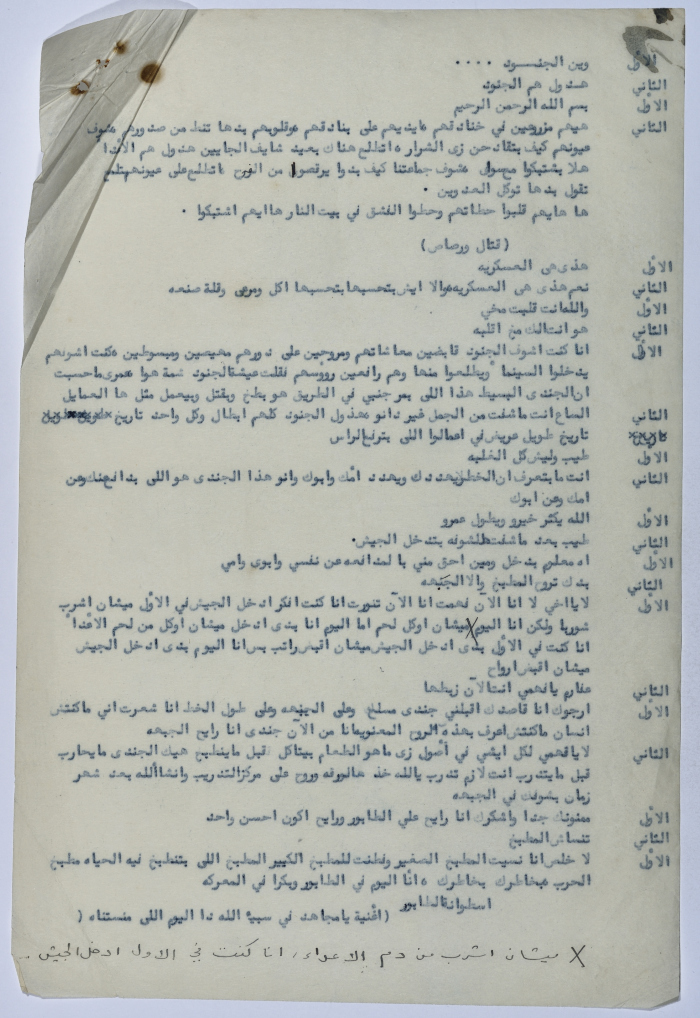 الاول وين الجنــود ....
الثاني هدول هم الجنود
الاول بسم الله الرحمن الرحيم
الثاني هيهم مزروعين في خنادقهم ايديهم على بنادقهم وقلوبهم بدها تنط من صدورهم شوف
عيونهم كيف بتقادحن زى الشرار اتطلع هناك بعيد شايف الجايين هدول هم الأعدا
هلا بشتبكوا شوف جماعتنا كيف بدوا يرقصوا من الفرح اتطلع على عيونهم بتلمع
تقول بدها توكل العدوين .
ها هايهم قلبوا حطاتهم وحطوا الفشق في بيت النار ها ايهم اشتبكوا .
( قتال ورصاص )
الاول هذى هى العسكريه
الثاني نعم هذى هى العسكريه والا ايش بتحسبها بتحسبها اكل ومرعى وقلة صنعه
الاول والله انت قلبت مخي
الثاني هو انت الك مخ اقلبه
الاول انا كنت اشوف الجنود قابضين معاشاتهم ومروحين على دورهم مهيصين ومبسوطين كنت اشوفهم
يدخلوا السينما ويطلعوا منها وهم رافعين رووسهم فقلت عيشة الجنود شمة هوا عمرى ما حسبت
ان الجندى البسيط هذا اللى بمر جنبي في الطريق هو بطخ وبقتل وبيعمل مثل ها العمايل
الثاني الصاع انت ما شفت من الجمل غير دانو هدول الجنود كلهم ابطال وكل واحد تاريخ
تاريخ طويل عريض في اعمالوا اللى بترفع الراس
الاول طيب وليش كل الغلبه
الثاني انت ما بتعرف ان الخطر يهددك ويهدد امك وابوك وانو هذا الجندى هو اللى بدافع عنك وعن
امك وعن ابوك
الاول الله يكثر خيرو ويطول عمرو
الثاني طيب بعد ما شفت هلشوفه بتدخل الجيش.
الاول اه معلوم بدخل ومين احق مني بالمدافعه عن نفسي وابوى وامي
الثاني بدك تروح المطبخ والا الجبهه
الاول لا يا اخي لا انا الآن فهمت انا الآن تنورت انا كنت افكر ادخل الجيش في الاول ميشان اشرب
شوربا ولكن انا اليوم X ميشان اوكل لحم اما اليوم انا بدى ادخل ميشان اوكل من لحم الاعداء
انا كنت في الاول بدى ادخل الجيش ميشان اقبض راتب بس انا اليوم بدى ادخل الجيش
ميشان اقبض ارواح
الثاني عفارم يا فهمي انت الآن زبطها
الاول ارجوك انا قاصدك اقبلني جندى مسلح وعلى الجبهه وعلى طول الخط انا شعرت اني ما كنتش
انسان ما كنتش اعرف بهذه الروح المعنويه انا من الآن جندى انا رايح الجبهه
الثاني لا يا فهمي لكل ايشي في أصول زى ما هو الطعام بيتاكل قبل ما ينطبخ هيك الجندى ما يحارب
قبل ما يتدرب انت لازم تدرب يالله خذ هالورقه وروح على مركز التدريب وانشاالله بعد شهر
زمان بشوفك في الجبهه
الاول ممنونك جدا واشكرك انا رايح علي الطابور ورايح اكون احسن واحد
الثاني تنساش المطبخ
الاول لا خلص انا نسيت المطبخ الصغير وفطنت للمطبخ الكبير المطبخ اللى بتنطبخ فيه الحياه مطبخ
الحرب بخاطرك بخاطرك انا اليوم في الطابور وبكرا في المعركه
اسطوانة الطابور
(اغنية يا مجاهد في سبيل الله دا اليوم اللى منستناه (
X ميشان اشرب من دم الاعداء، انا كنت في الاول ادخل الجيش ..